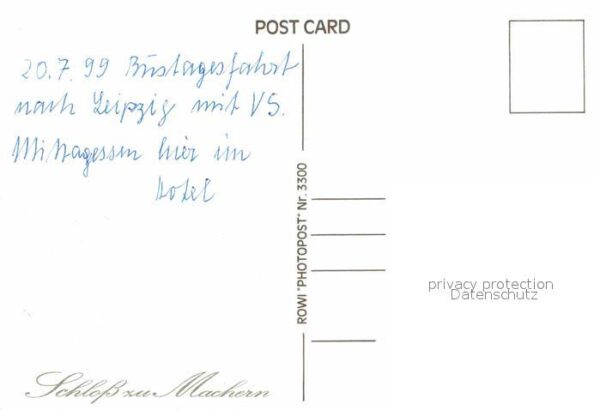 POST CARD
20.7.99 Bustagesfahrt
nach Leipzig mit VS.
Mittagessen hier im
Hotel
ROWI "PHOTOPOST" Nr. 3300
privacy protection
Datenschutz
Schloß zu Machern